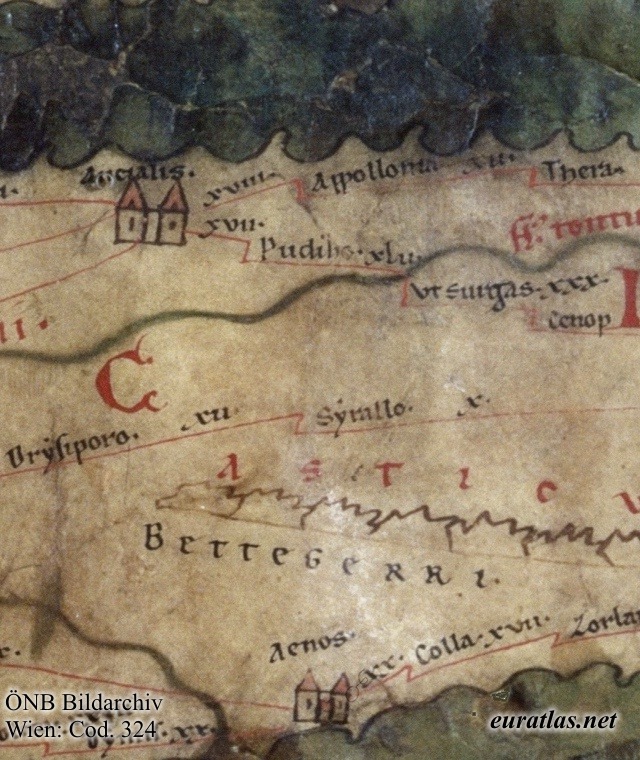 Ancialis.
xviii. Appollonia xii. Thera
xvii.
Pudizo. xlii.
Utsurgas. xxx.
Cenop
C
Drysiporo. xii. Syrallo. x.
A S T I C V
BETTEGERRI.
Aenos.
xx. Colla. xvii. Zorla
ÖNB Bildarchiv
Wien: Cod. 324
euratlas.net